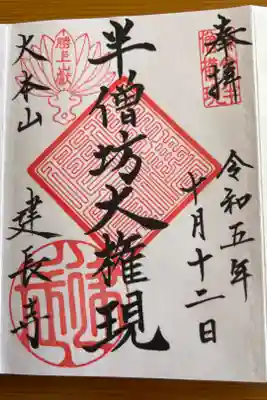 奉拝
令和五年
十月十二日
半僧坊大権現
勝上嶽
大本山
建長寺